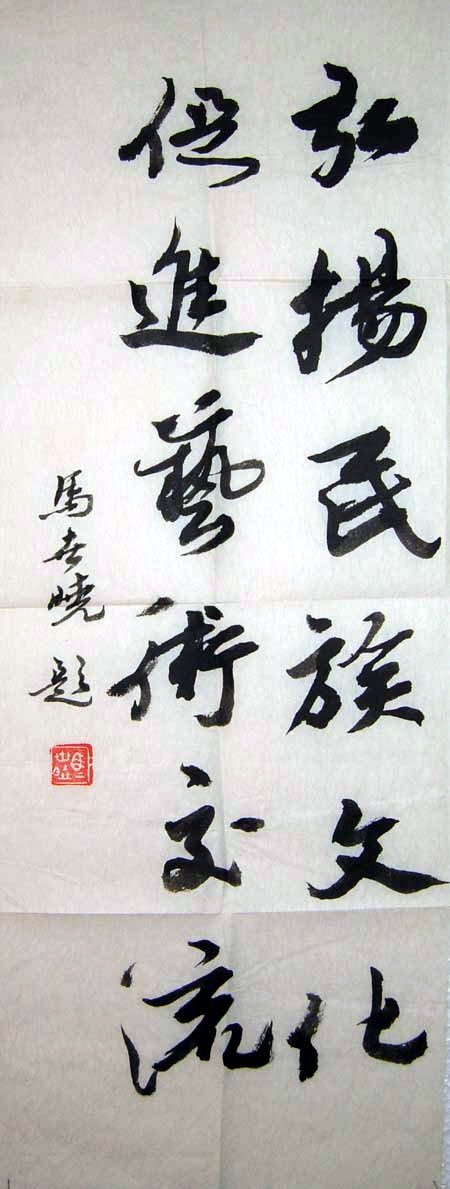 弘揚民族文化
促進藝術交流
馬世曉題